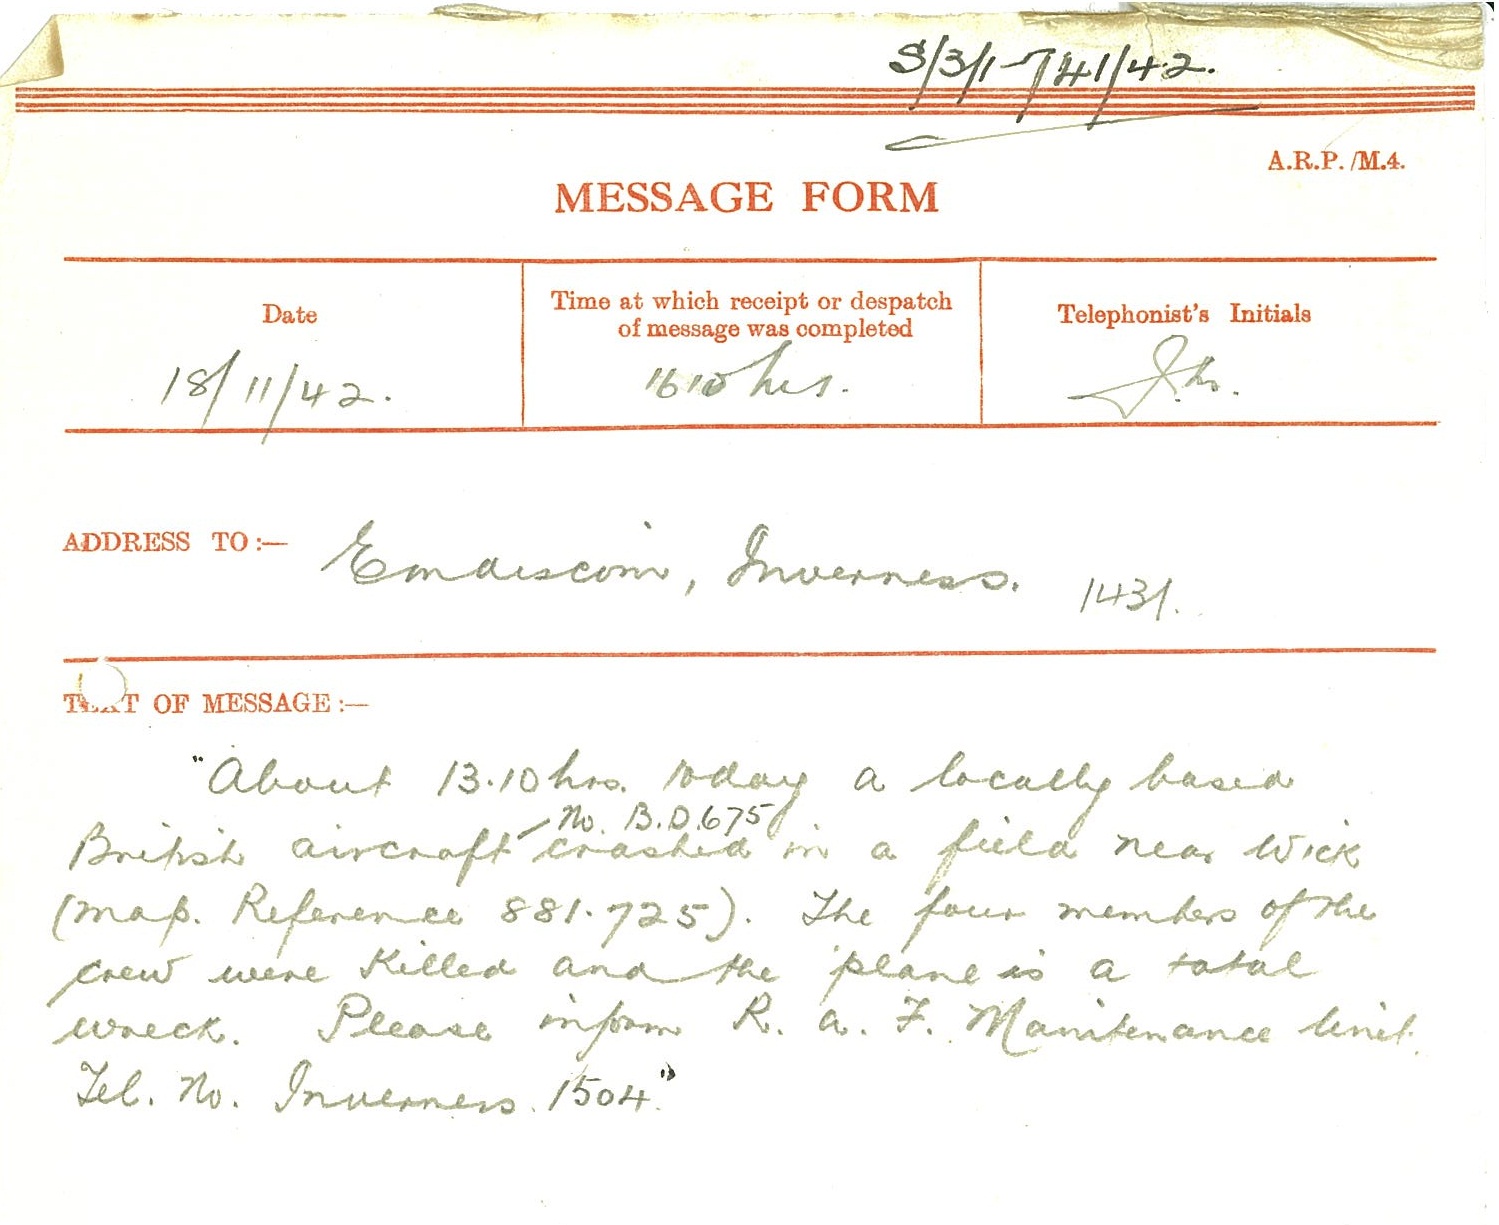 S/3/1-741/42.
A.R.P./M.4.
MESSAGE FORM
Date
Time at which receipt or despatch
of message was completed
Telephonist's Initials
18/11/42.
1610 hrs.
ADDRESS TO :—
Emdiscom, Inverness. 1431.
TEXT OF MESSAGE :—
"About 13.10 hrs. today a locally based
No. B.D.675
British aircraft crashed in a field near Wick
(map. Reference 881.725). The four members of the
crew were killed and the plane is a total
wreck. Please inform R.A.F. Maintenance Unit.
Tel. No. Inverness 1504"